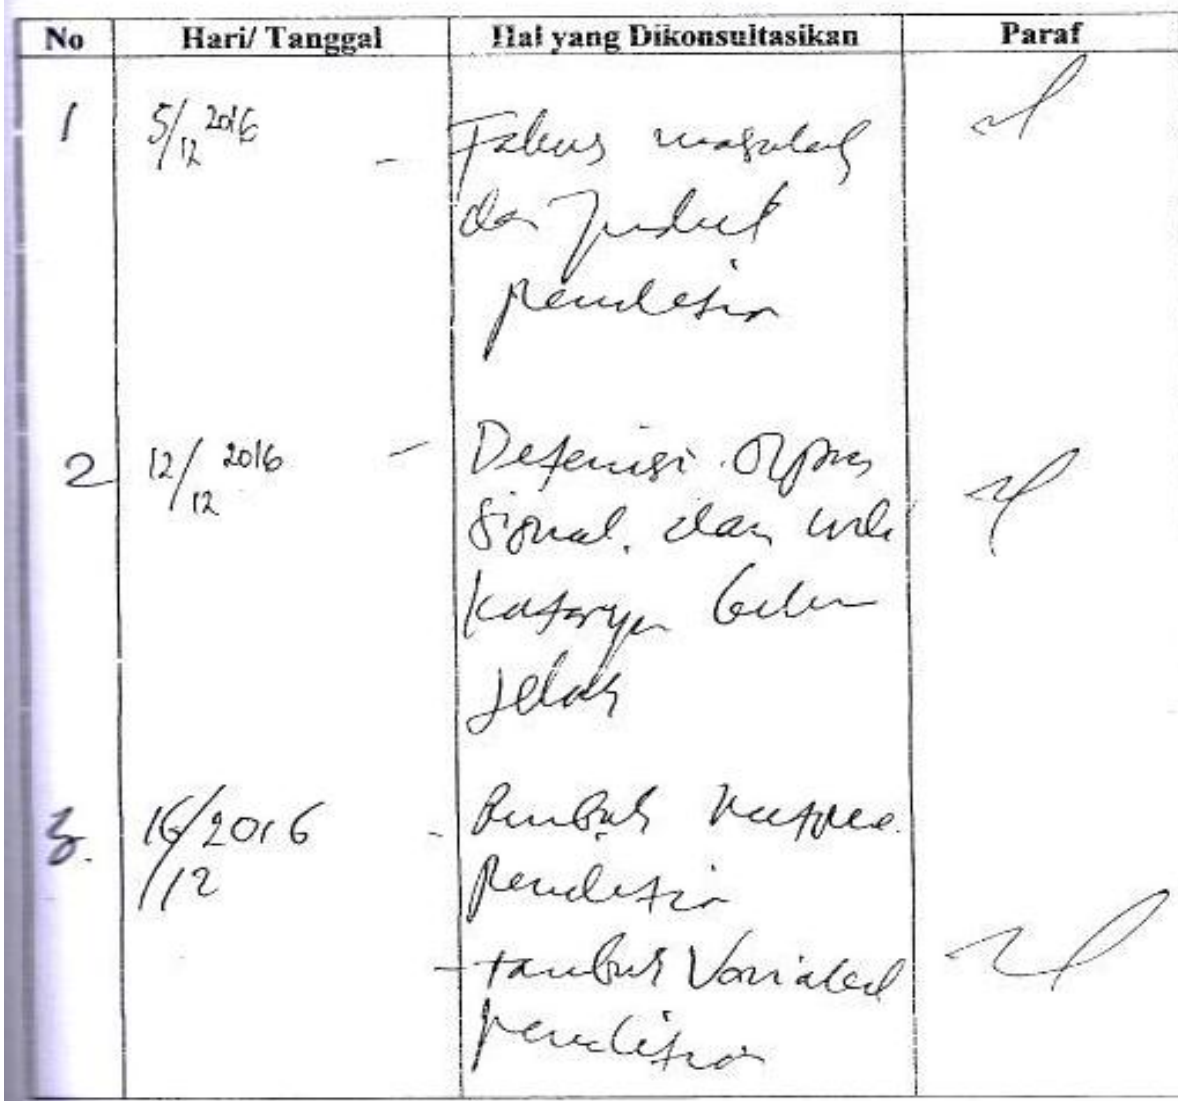 No Hari/ Tanggal Hal yang Dikonsultasikan Paraf
1 5/12 2016 - Fokus masalah
dan produk
penelitian
2 12/12 2016 - Defenisi Opera
sional. dan
belum
jelas
3. 16/2016 -
/12 penelitian
- tambah Variabel
penelitian